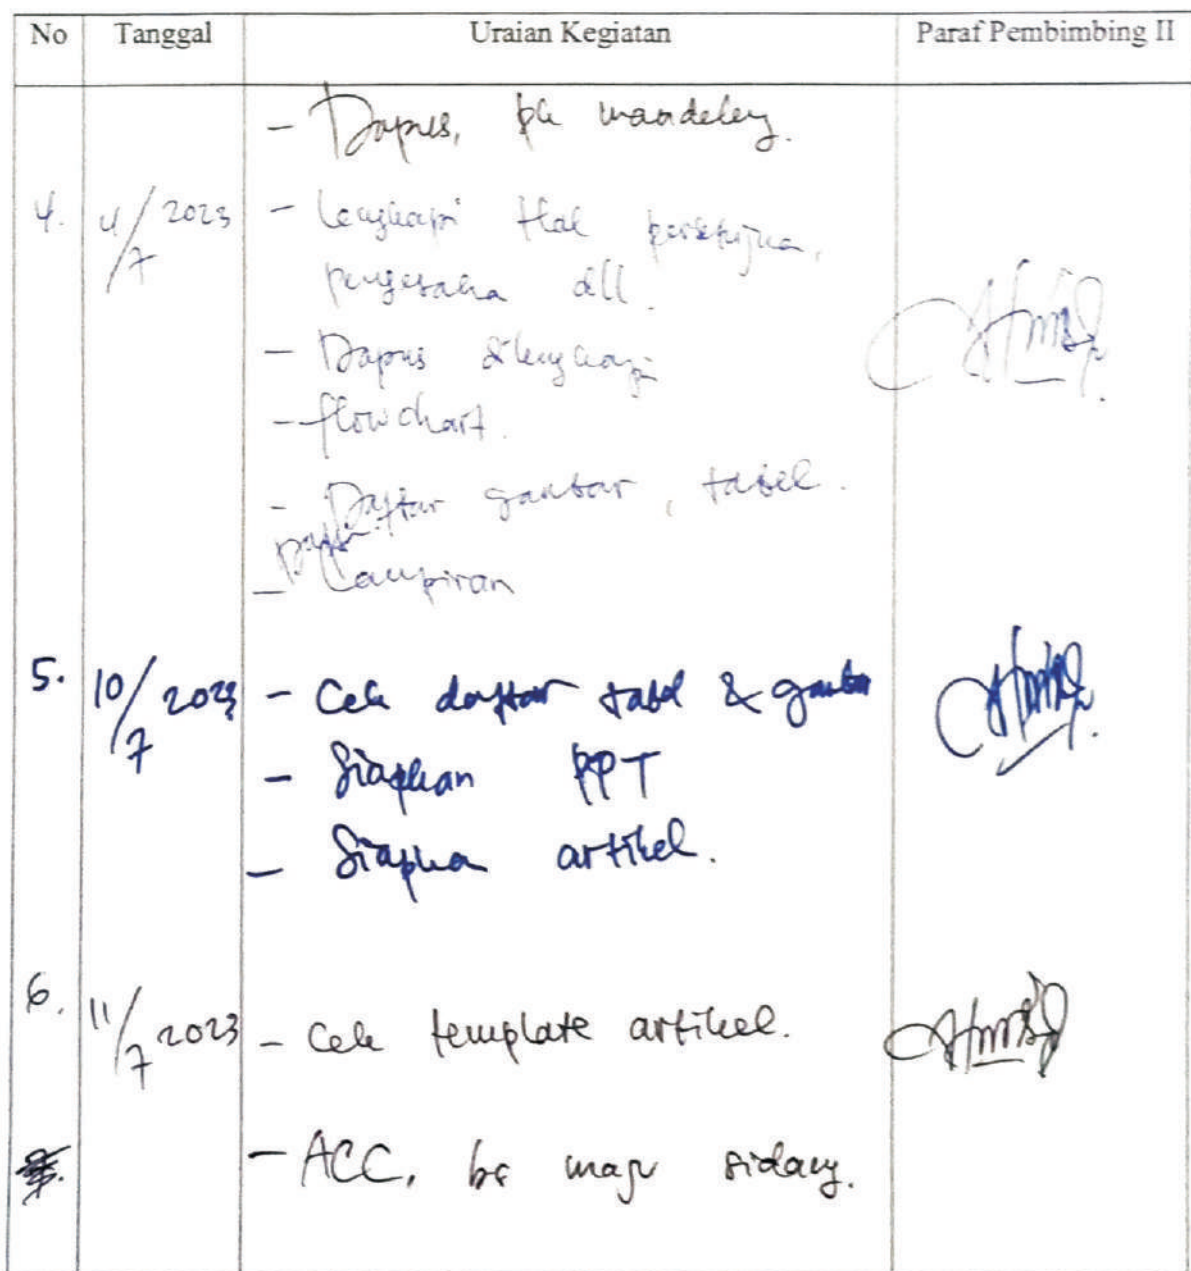 No Tanggal Uraian Kegiatan Paraf Pembimbing II
- Dapus, pk mendeley.
4. 4/7 2023 - Lengkapi Hal persetujuan,
pengesahan dll.
- Dapus dilengkapi
- flowchart.
- Daftar gambar, tabel.
- Lampiran
5. 10/7 2023 - Cek daftar tabel & gambar
- Siapkan PPT
- Siapkan artikel.
6. 11/7 2023 - Cek template artikel.
- ACC, bs maju sidang.